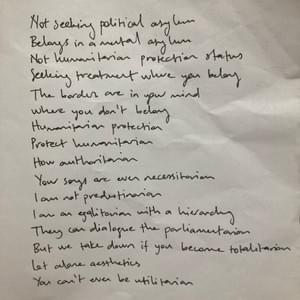 Not seeking political asylum
Belongs in a mental asylum
Not humanitarian protection status
Seeking treatment where you belong
The borders are in your mind
where you don't belong
Humanitarian protection
Protect humanitarian
How authoritarian
Your songs are even necessitarian
I am not predestinarian
I am an egalitarian with a hierarchy
They can dialogue the parliamentarian
But we take down if you become totalitarian
let alone aesthetics
You can't ever be utilitarian